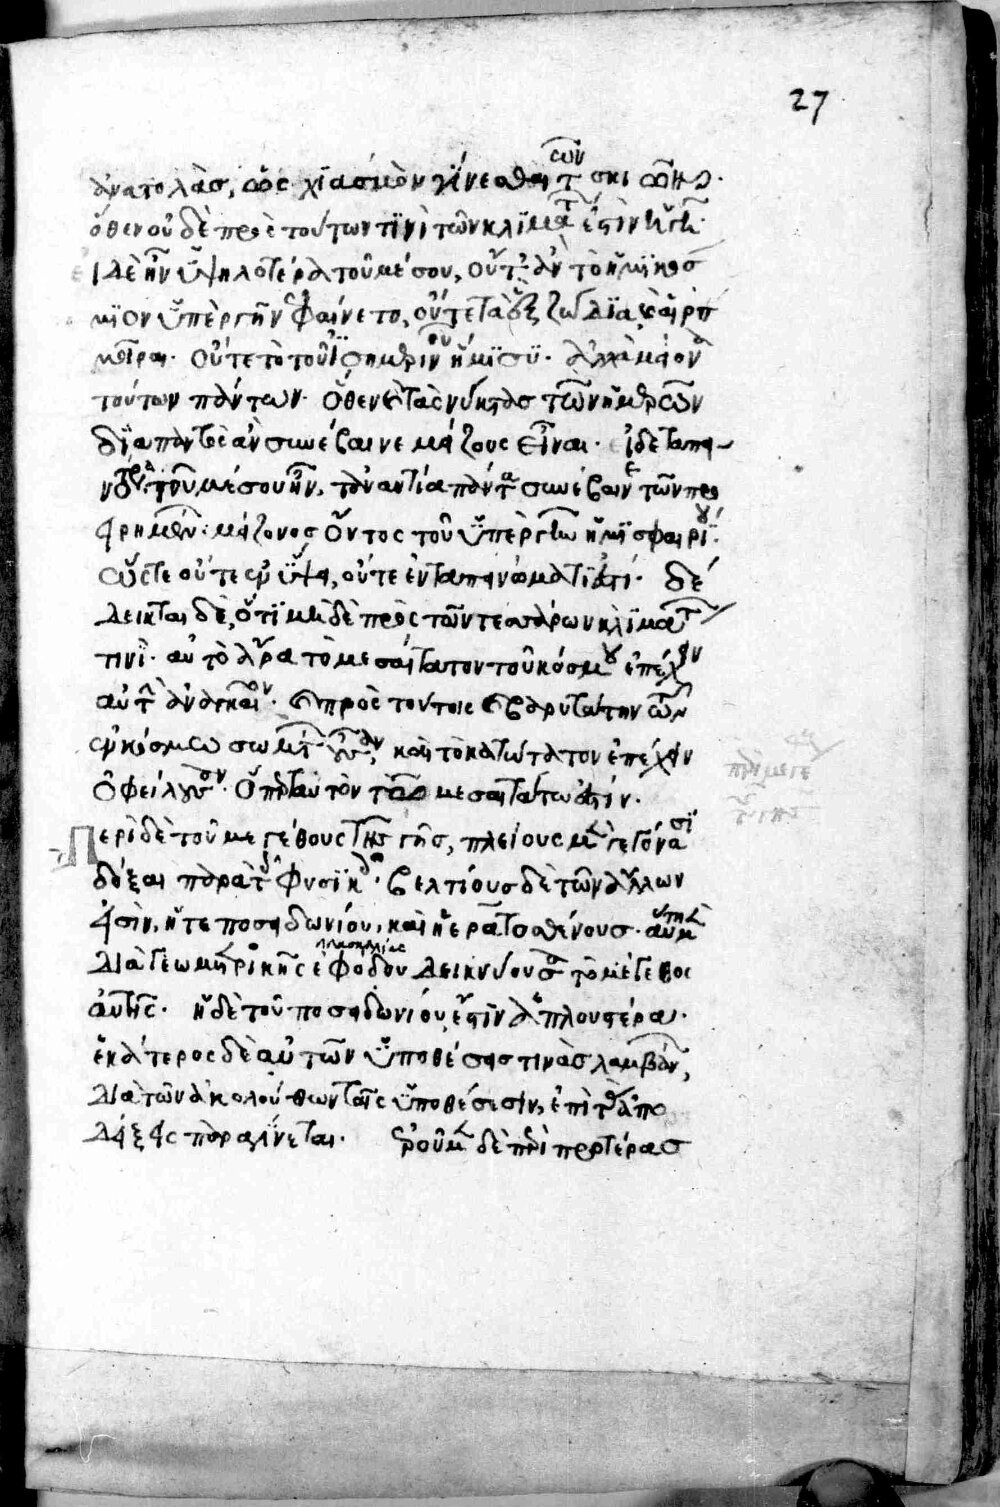 27
ἀνατολὰς, ὡς χϊασμὸν γίνεσθαι τῶν σκιῶν.
ὅθεν οὐδὲ πρὸς τούτων τϊνὶ τῶν κλϊμάτ ἐστὶν ἡ γῆ.
εἰ δὲ ἦν ὑψηλοτέρα τοῦ μέσου, οὔτ ἂν τὸ ἡμϊκόσ
μϊον ὑπὲρ γῆν ἐφαίνετο, οὔτε τὰ ἓξ ζώδϊα,
μοῖραι. οὔτε τὸ τοῦ ἰσημερινοῦ ἥμϊσϋ. ἀλλὰ μεῖον
τούτων πάντων. ὅθεν καὶ τὰς νύκτας τῶν ἡμερῶν
δϊαπαντὸς ἂν συνέβαινε μείζους εἶναι. εἰ δὲ ταπει
νοτέρα τοῦ μέσου ἦν, τὰναντία πάντα συνέβαινε τῶν προ
ειρημένων. μείζονος ὄντος τοῦ ὑπὲρ γῆν ἡμϊσφαιρίου.
ὥστε οὔτε ἐν ὕψει, οὔτε ἐν ταπεινώματϊ ἐστί. δέ
δεικται δὲ, ὅτϊ μηδὲ πρὸς τῶν τεσσάρων κλϊμάτ
τινϊ. αὐτὸ ἄρα τὸ μεσαίτατον τοῦ κόσμου ἐπέχειν
αὐτὴν ἀναγκαῖον. καὶ πρὸς τούτοις καὶ βαρυτάτην τῶν
ἐν κόσμω σωμάτ οὖσαν, καὶ τὸ κατώτατον ἐπέχειν
ὀφείλουσαν. ὅπερ ταὐτὸν τῶ μεσαιτάτω ἐστίν.
Περὶ δὲ τοῦ μεγέθους τῆς γῆς, πλείους μὲν γεγόνασϊ
δόξαι παρὰ τοῖς φυσϊκοῖς. βελτίους δὲ τῶν ἄλλων
εἰσὶν, ἥ τε ποσειδωνίου, καὶ ἡ ἐρατοσθένους. αὕτη μὲν
διὰ γεωμετρικῆς ἐφόδου δεικνύουσα τὸ μέγεθος
αὐτῆς. ἡ δὲ τοῦ ποσειδωνίου, ἐστὶν ἁπλουστέρα.
ἑκάτερος δὲ αὐτῶν ὑποθέσεις τινὰς λαμβάνων,
διὰ τῶν ἀκολούθων ταῖς ὑποθέσεσιν, ἐπὶ τὰς ἀπο
δείξεις παραγίνεται. ἐροῦμεν δὲ περὶ προτέρας